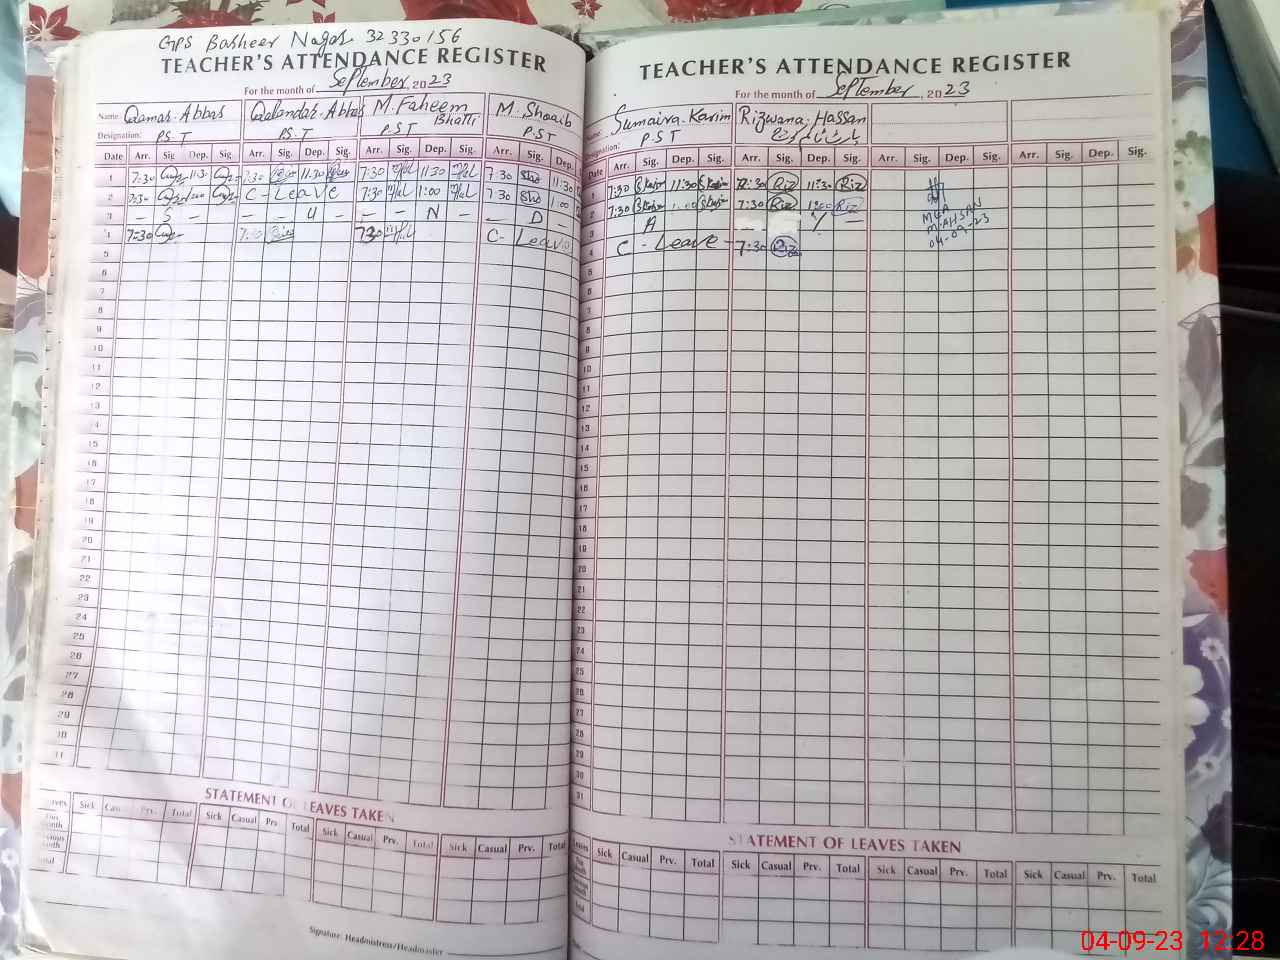 GPS Basheer Nagar 32330156
TEACHER'S ATTENDANCE REGISTER
For the month of September, 2023
Name Qamar Abbas Qalandar Abbas M. Faheem Bhatti M. Shoaib
Designation: P.S.T P.S.T P.S.T P.S.T
Date Arr. Sig. Dep. Sig. Arr. Sig. Dep. Sig. Arr. Sig. Dep. Sig. Arr. Sig. Dep.
1 7:30 11:30 7:30 11:30 7:30 11:30 7:30 11:30
2 7:30 1:00 C - Leave 7:30 1:00 7:30 1:00
3 — S — — — U — — — N — — D —
4 7:30 7:30 7:30 C - Leave
5
6
7
8
9
10
11
12
13
14
15
16
17
18
19
20
21
22
23
24
25
26
27
28
29
30
31
STATEMENT OF LEAVES TAKEN
Sick Casual Prv. Total Sick Casual Prv. Total Sick Casual Prv. Total Sick Casual Prv. Total
Signature: Headmistress/Headmaster
TEACHER'S ATTENDANCE REGISTER
For the month of September, 2023
Name Sumaira Karim Rizwana Hassan
Designation: P.S.T
Date Arr. Sig. Dep. Sig. Arr. Sig. Dep. Sig. Arr. Sig. Dep. Sig. Arr. Sig. Dep. Sig.
1 7:30 SKarim 11:30 SKarim 7:30 Riz 11:30 Riz
2 7:30 SKarim 1:00 SKarim 7:30 Riz 1:00 Riz
3 A Y
4 C - Leave - 7:30 Riz
MEA
M.AHSAN
04-09-23
5
6
7
8
9
10
11
12
13
14
15
16
17
18
19
20
21
22
23
24
25
26
27
28
29
30
31
STATEMENT OF LEAVES TAKEN
Leaves Sick Casual Prv. Total Sick Casual Prv. Total Sick Casual Prv. Total Sick Casual Prv. Total
This Month
Previous Month
Total
04-09-23 12:28